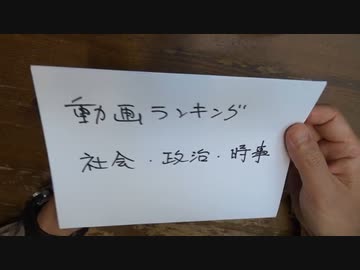 動画ランキング
社会・政治・時事